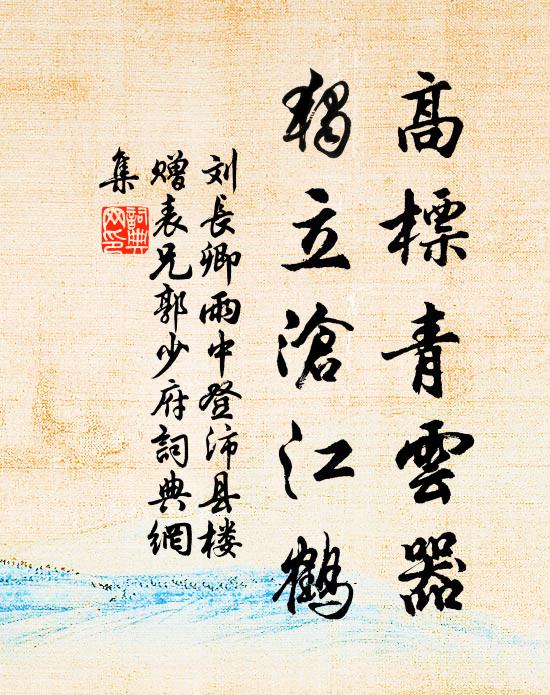 高標青雲器
獨立滄江鶴
刘長卿雨中登沛县楼
贈表兄郭少府詞典網
集
詞典
网印